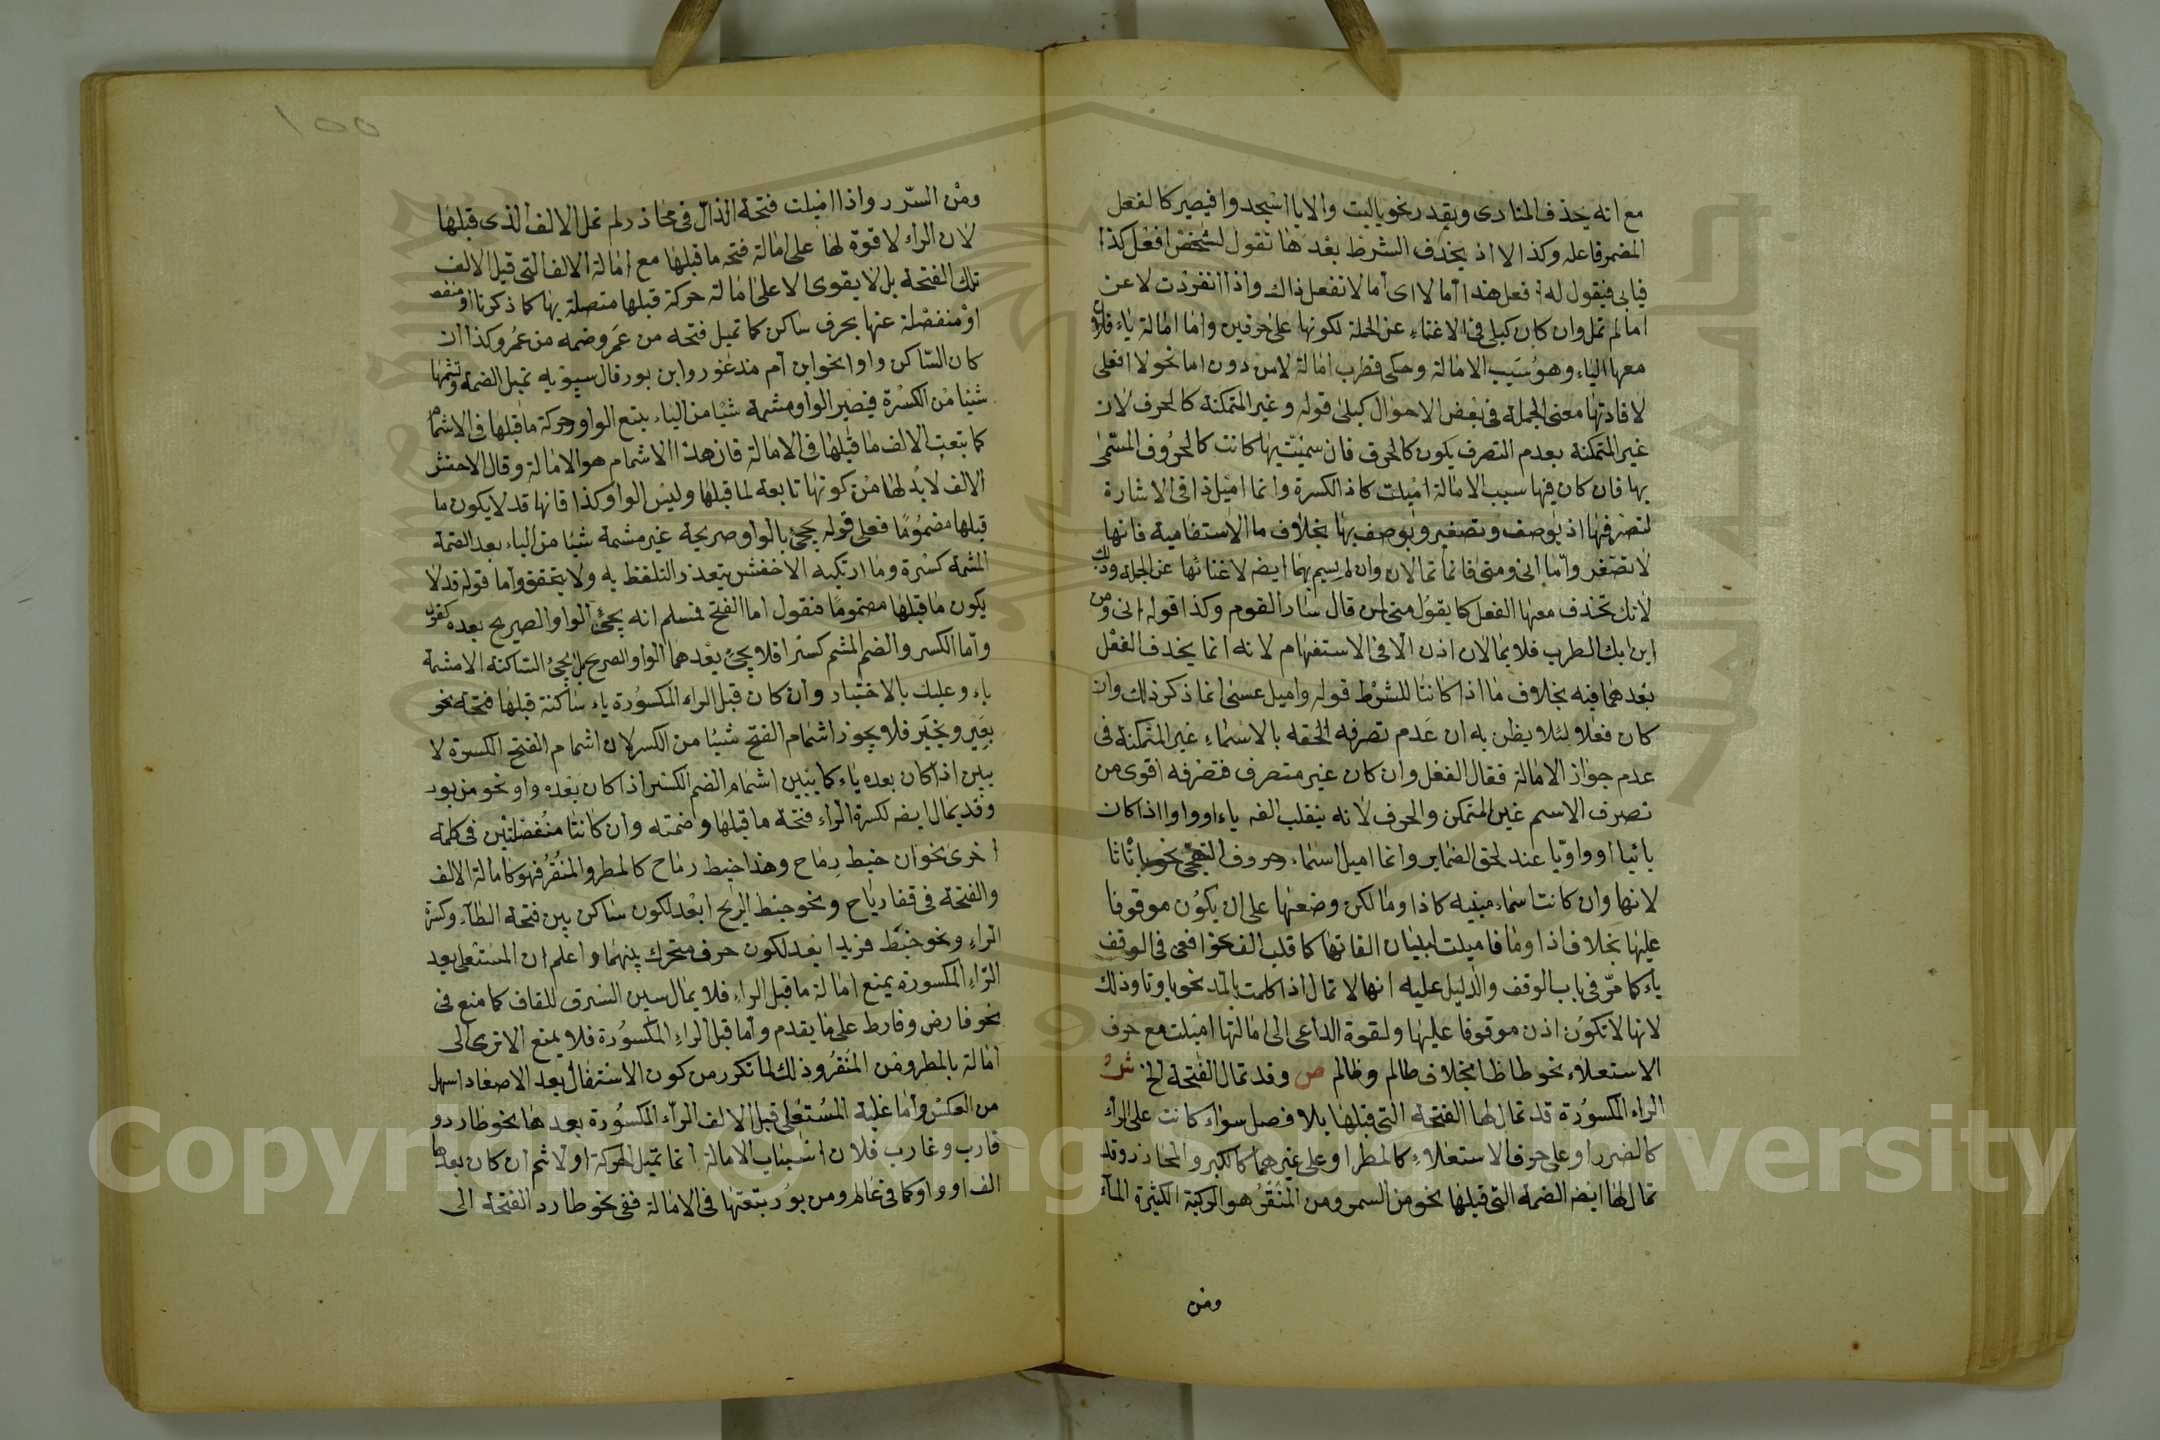 مع انه يحذف المنادى ويقدر نحو ياليت والا يا اسجدوا فيصير كالفعل
المضمر فاعله وكذا لا اذ يحذف الشرط بعدها تقول لشخص افعل كذا
فيابى فيقول له افعل هذا اما لا اى اما لا تفعل ذاك واذا انفردت لا عن
اما لم تمل وان كان كبلى فى الاغناء عن الجملة لكونها على حرفين واما امالة ياء فلان
معها الياء وهو سبب الامالة وحكى قطرب امالة لا من دون اما نحو لا افعل
لافادتها معنى الجملة فى بعض الاحوال كبلى قوله وغير المتمكنة كالحرف لان
غير المتمكنة بعدم التصرف يكون كالحرف فان سميت بها كانت كالحروف المسمى
بها فان كان فيها سبب الامالة اميلت كاذ الكسرة وانما اميل ذا فى الاشارة
لتصرفها اذ يوصف وتصغير ويوصف بها بخلاف ما الاستفهامية فانها
لا تصغر واما انى ومتى فانما تمالان وان لم يسم بهما ايضه لاغنائها عن الجملة وذلك
لانك تحذف معها الفعل كما يقول متى لمن قال سار القوم وكذا قوله انى ومن
اين ابك الطرب فلا يمالان اذن الا فى الاستفهام لانه انما يحذف الفعل
بعدهما فيه بخلاف ما اذا كانتا للشرط قوله واميل عسى انما ذكر ذلك وان
كان فعلا لئلا يظن به ان عدم تصرفه الحقه بالاسماء غير المتمكنة فى
عدم جواز الامالة فقال الفعل وان كان غير متصرف فتصرفه اقوى من
تصرف الاسم غير المتمكن والحرف لانه ينقلب الفه ياء او واوا اذا كان
يائيا او واويا عند لحق الضماير وانما اميل اسماء حروف التهجى نحو با تا ثا
لانها وان كانت اسماء مبنيه كاذا وما لكن وضعها على ان يكون موقوفا
عليها بخلاف اذا وما فاميلت لبيان الفاتها كما قلب الف نحو افعى فى الوقف
ياء كما مر فى باب الوقف والدليل عليه انها لا تمال اذا كملت بالمد نحو باء وتاء وذلك
لانها لا تكون اذن موقوفا عليها ولقوة الداعى الى امالتها اميلت مع حرف
الاستعلاء نحو طا ظا بخلاف طالم وظالم ص وقد تمال الفتحة الخ ش
الراء المكسورة قد تمال لها الفتحة التى قبلها بلا فصل سواء كانت على الراء
كالضرر او على حرف الاستعلاء كالمطر او على غيرهما كالكبر والمحاذر وقد
تمال لها ايضه الضمة التى قبلها نحو من السمر ومن المنقر هو الركية الكثيرة الماء
ومن
١٥٥
ومن السرر واذا اميلت فتحة الذال فى محاذر لم تمل الالف الذى قبلها
لان الراء لا قوة لها على امالة فتحه ما قبلها مع امالة الالف التى قبل الالف
تلك الفتحة بل لا يقوى الا على امالة حركة قبلها متصلة بها كما ذكرنا
او منفصلة عنها بحرف ساكن كما تميل فتحه من عمرو ضمه من عمرو وكذا ان
كان الساكن واوا نحو ابن ام مذعور وابن بور قال سيبويه تميل الضمة وتشمها
شيئا من الكسرة فيصير الواو مشمة شيئا من الياء يتبع الواو حركة ما قبلها فى الاشمام
كما تبعت الالف ما قبلها فى الامالة فان هذا الاشمام هو الامالة وقال الاخفش
الالف لا بد لها من كونها تابعة لما قبلها وليس الواو كذا فانها قد لا يكون ما
قبلها مضموما فعلى قوله يجئ بالواو صريحة غير مشمة شيئا من الياء بعد الضمة
المشمة كسرة وما ارتكبه الاخفش يتعذر التلفظ به ولا يتحقق واما قوله قد لا
يكون ما قبلها مضموما فنقول اما الفتح فمسلم انه يجئ الواو الصريح بعده كقول
واما الكسر والضم المشم كسرا فلا يجئ بعدهما الواو الصريح بل يجئ الساكنة الا مشمة
ياء وعليك بالاختبار وان كان قبل الراء المكسورة ياء ساكنة قبلها فتحة نحو
بعير وبخير فلا يجوز اشمام الفتح شيئا من الكسر لان اشمام الفتح الكسرة لا
يبين اذا كان بعده ياء كما يتبين اشمام الضم الكسر اذا كان بعده واو نحو من بور
وقد يمال ايضه لكسرة الراء فتحة ما قبلها وضمته وان كانتا منفصلتين فى كلمة
اخرى نحو ان خبط رماح وهذا خبط رماح كالمطر والمنقر فهو كامالة الالف
والفتحة فى قفا رياح ونحو خبط الريح ابعد لكون ساكن بين فتحة الطاء وكسرة
الراء ونحو خبط فريد ابعد لكون حرف متحرك بينهما واعلم ان المستعلى بعد
الراء المكسورة يمنع امالة ما قبل الراء فلا يمال سين السرق للقاف كما منع فى
نحو فارض وفارط على ما يقدم واما قبل الراء المكسورة فلا يمنع الا ترى الى
امالة بالمطر ومن المنقر وذلك لما تكرر من كون الاستفال بعد الاصعاد اسهل
من العكس واما غلبة المستعلى قبل الالف الراء المكسورة بعدها نحو طارد و
قارب وغارب فلان اسباب الامالة انما تميل الحركة اولا ثم ان كان بعدها
الف او واو كما فى عالم ومن بور تبعتها فى الامالة ففى نحو طارد الفتحة الى
Copyright © King Saud University